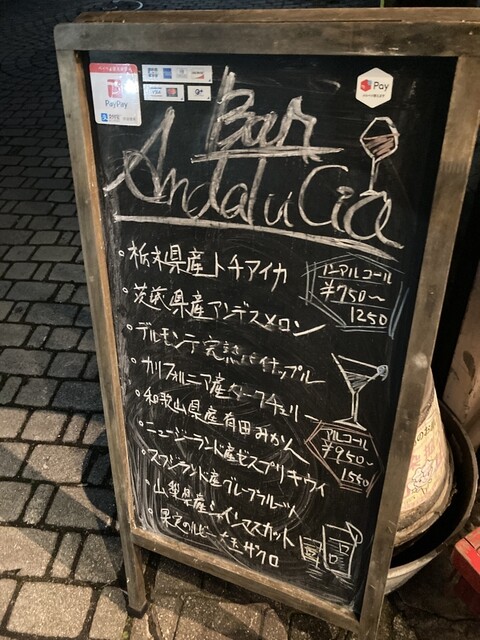 PayPay
Pay
Bar
AndaluCia
。栃木県産トチアイカ
ノンアルコール
¥750〜
1250
。茨城県産アンデスメロン
。デルモンテ完熟パイナップル
。カリフォルニア産ダークチェリー
。和歌山県産有田みかん
アルコール
¥950〜
1550
。ニュージーランド産ゼスプリキウイ
。スワジランド産グレープフルーツ
。山梨県産シャインマスカット
。果実のルビー大玉ザクロ